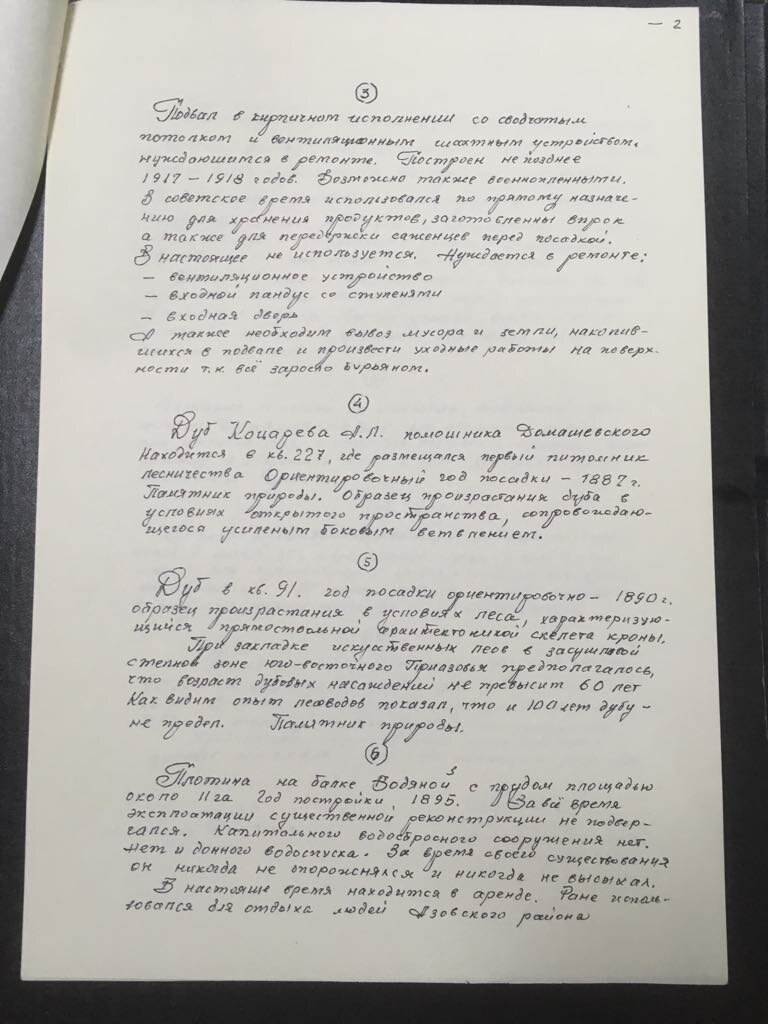 — 2
③
Подвал в кирпичном исполнении со сводчатым
потолком и вентиляционным шахтным устройством,
нуждающимся в ремонте. Построен не позднее
1917 – 1918 годов. Возможно также военнопленными.
В советское время использовался по прямому назначе-
нию для хранения продуктов, заготовленны впрок
а также для передержки саженцев перед посадкой.
В настоящее не используется. Нуждается в ремонте:
– вентиляционное устройство
– входной пандус со ступенями
– входная дверь
А также необходим вывоз мусора и земли, накопив-
шихся в подвале и произвести уходные работы на поверх-
ности т.к. всё заросло бурьяном.
④
Дуб Коцарева А.Л. помошника Домашевского
Находится в кв. 227, где размещался первый питомник
лесничества Ориентировочный год посадки – 1887 г.
Памятник природы. Образец произрастания дуба в
условиях открытого пространства, сопровождаю-
щегося усиленым боковым ветвлением.
⑤
Дуб в кв. 91. год посадки ориентировочно – 1890 г.
образец произрастания в условиях леса, характеризую-
щийся прямоствольной архитектоникой скелета кроны.
При закладке искуственных лесов в засушливой
степной зоне юго-восточного Приазовья предполагалось,
что возраст дубовых насаждений не превысит 60 лет
Как видим опыт лесоводов показал, что и 100 лет дубу –
не предел. Памятник природы.
⑥
Плотина на балке Водяной с прудом площадью
около 11 га Год постройки 1895. За всё время
эксплоатации существенной реконструкции не подвер-
гался. Капитального водосбросного сооружения нет.
Нет и донного водоспуска. За время своего существования
он никогда не опорожнялся и никогда не высыхал.
В настояще время находится в аренде. Ране исполь-
зовался для отдыха людей Азовского района